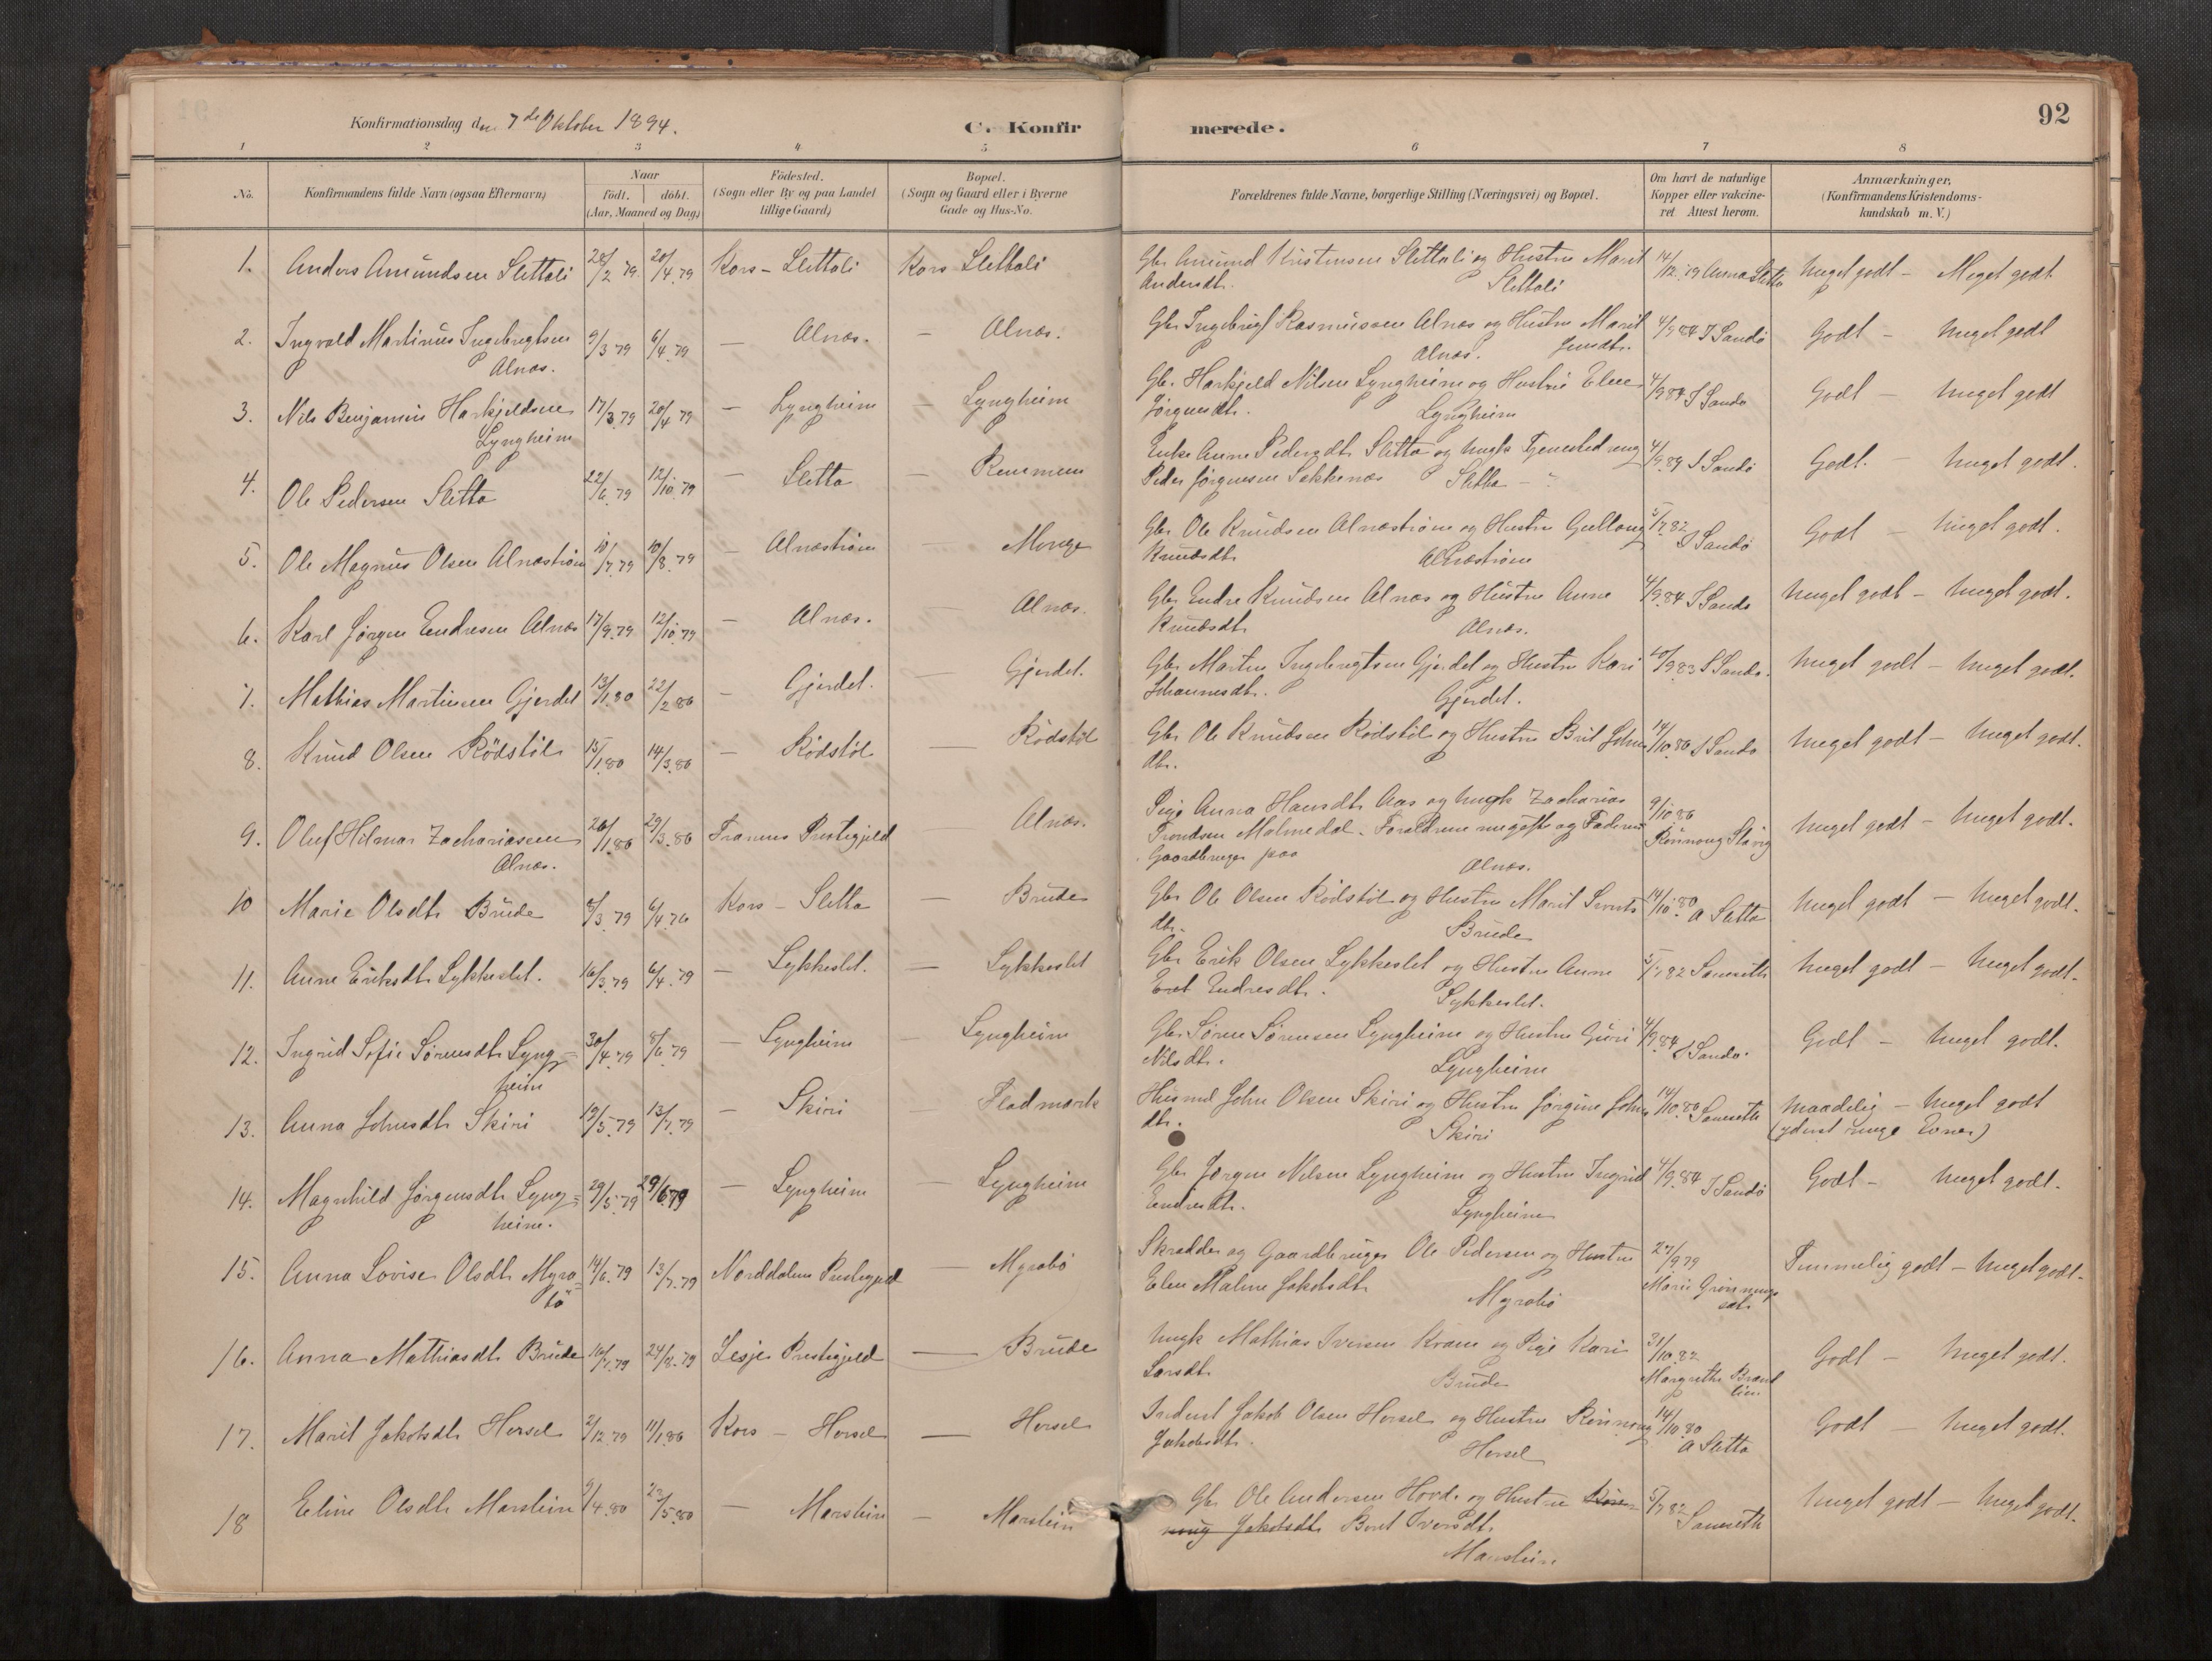 Konfirmationsdag den 7de Oktober 1894.
C. Konfir merede.
92
1 2 3 4 5 6 7 8
No. Konfirmandens fulde Navn (ogsaa Efternavn) Naar födt. döbt. (Aar, Maaned og Dag) Födested. (Sogn eller By og paa Landet tillige Gaard) Bopæl. (Sogn og Gaard eller i Byerne Gade og Hus-No. Forældrenes fulde Navne, borgerlige Stilling (Næringsvei) og Bopæl. Om havt de naturlige Kopper eller vakcineret Attest herom. Anmærkninger, (Konfirmandens Kristendomskundskab m. V.)
1. Anders Amundsen Slettali 28/2 79 20/4 79 Kors - Slettali Kors Slettali Gbr Amund Kristensen Slettali og Hustru Marit 14/12 79 Anna Sletta Meget godt - Meget godt
Andersdt. Slettali
2. Ingvald Martinus Ingebrigtsen 9/3 79 6/4 79 — Alnæs. — Alnæs. Gbr Ingebrigt Rasmussen Alnæs og Hustru Marit 4/9 84 I Sandö Godt - Meget godt
Alnæs. Alnæs. Jensdt.
3. Nils Benjamin Harkjeldsen 17/3 79 20/4 79 — Lyngheim — Lyngheim Gbr. Harkjeld Nilsen Lyngheim og Hustru Elen 4/9 84 I Sandö Godt - Meget godt
Lyngheim Jörgensdt. Lyngheim
4. Ole Pedersen Sletta 22/6 79 12/10 79 — Sletta — Remmem Enke Anne Pedersdt. Sletta og Ungk Tjenestedreng 4/9 89 I Sandö Godt. - Meget godt.
Peder Jörgensen Sekkenæs Sletta - ?
5. Ole Magnus Olsen Alnæström 10/7 79 10/8 79 — Alnæström — Monge Gbr Ole Knudsen Alnæström og Hustru Gullaug 5/7 82 I Sandö Godt - Meget godt.
Knudsdt. Alnæström
6. Karl Jörgen Endresen Alnæs 17/9 79 12/10 79 — Alnæs. — Alnæs. Gbr Endre Knudsen Alnæs og Hustru Anne 4/9 84 I Sandö Meget godt - Meget godt.
Knudsdt. Alnæs.
7. Mathias Martinsen Gjerdet 13/1 80 22/2 80 — Gjerdet. — Gjerdet. Gbr Martin Ingebrigtsen Gjerdet og Hustru Kari 20/9 83 I Sandö. Meget godt - Meget godt.
Johannesdt. Gjerdet.
8. Knud Olsen Rödstöl 15/1 80 14/3 80 — Rödstöl — Rödstöl Gbr Ole Knudsen Rödstöl og Hustru Brit Johns 14/10 80 I Sandö Meget godt - Meget godt.
dtr.
9. Oluf Hilmar Zachariassen 26/1 80 29/3 80 Frænens Prestegjeld Alnæs. Pige Anna Hansdt. Aas og Ungk Zacharias 9/10 80 Meget godt - Meget godt.
Alnæs. Trondsen Malmedal. Forældrene nugifte og Faderen Rönnoug Slavig
Gaardbruger paa Alnæs.
10 Marie Olsdt. Brude 8/3 79 6/4 76 Kors - Sletta — Brude Gbr Ole Olsen Rödstöl og Hustru Marit Sivrts 14/10 80 A Sletta Meget godt - Meget godt.
dtr. Brude
11. Anne Eriksdt. Lykkeslet. 16/3 79 6/4 79 — Lykkeslet. — Lykkeslet Gbr Erik Olsen Lykkeslet og Hustru Anne 5/7 82 Meget godt - Meget godt.
Endresdt. Lykkeslet.
12. Ingrid Sofie Sörensdt. Lyng- 30/4 79 8/6 79 — Lyngheim — Lyngheim Gbr Sören Sörensen Lyngheim og Hustru Guri 4/9 84 I Sandö. Godt - Meget godt.
heim Nilsdt. Lyngheim
13. Anna Johnsdt. Skiri 12/5 79 13/7 79 — Skiri — Fladmark Husmd John Olsen Skiri og Hustru Jörgine Johns 14/10 80 Maadelig - Meget godt
dtr. Skiri (yderst ringe Evner)
14. Magnhild Jörgensdt. Lyng= 29/5 79 29/6 79 — Lyngheim — Lyngheim Gbr Jörgen Nilsen Lyngheim og Hustru Ingrid 4/9 84 I Sandö Godt - Meget godt.
heim. Endresdt. Lyngheim
15. Anna Lovise Olsdt. Myra= 14/6 79 13/7 79 Norddalens Prestegjeld — Myrabö Skrædder og Gaardbruger Ole Pedersen og Hustru 27/9 79 Temmelig godt - Meget godt.
bö Elen Maline Jakobsdt. Myrabö Marie Grönnings
sæt.
16. Anna Mathiasdt. Brude 16/7 79 24/8 79 Lesje Prestegjeld — Brude Ungk Mathias Iversen Kram og Pige Kari 31/10 82 Godt - Meget godt.
Larsdt. Brude Margrethe Brand
lien.
17. Marit Jakobsdt. Horsel 2/12 79 11/1 80 Kors - Horsel — Horsel Inderst Jakob Olsen Horsel og Hustru Rönnoug 14/10 80 Godt - Meget godt.
Jakobsdt. Horsel A Sletta
18 Eline Olsdt. Marstein 9/4 80 /5 80 — Marstein — Marstein Gbr Ole Andersen Horde og Hustru Rön- 5/7 82 Meget godt - Meget godt.
noug Jakobsdt. Beret Iversdt.
Marstein